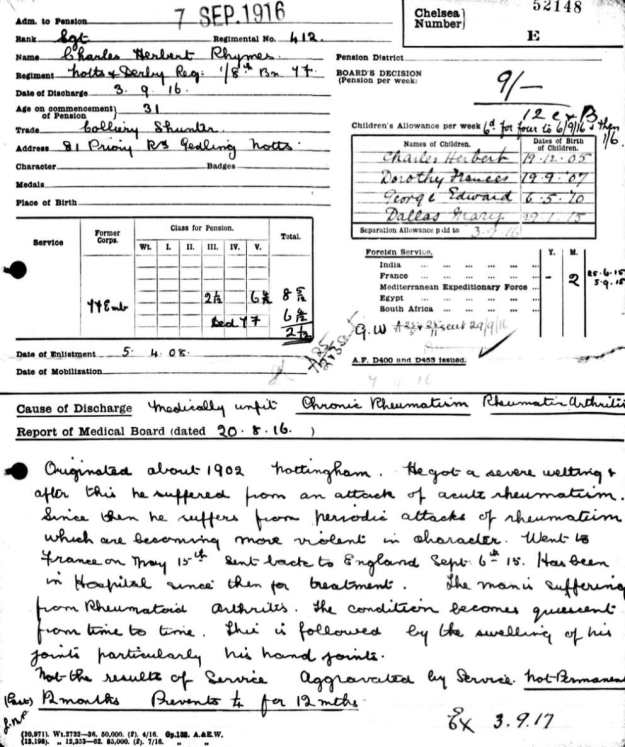 Adm. to Pension 7 SEP. 1916
Chelsea Number 52148
E
Rank Sgt Regimental No. 412.
Name Charles Herbert Rhymes
Regiment Notts & Derby Reg: 1/8th Bn TF.
Date of Discharge 3. 9. 16.
Age on commencement of Pension 31
Trade Colliery Shunter.
Address 81 Priory Rd Gedling Notts.
Character Badges
Medals
Place of Birth
Pension District
BOARD'S DECISION (Pension per week)
9/-
12 c x B
Children's Allowance per week 6d for four to 6/9/16 & then 1/6.
Names of Children. Dates of Birth of Children.
Charles Herbert 19.12.05
Dorothy Frances 19.9.07
George Edward 6.5.10
Dallas Mary 19.1.15
Separation Allowance paid to 3.9.16
Service Former Corps. Class for Pension. Total.
Wt. I. II. III. IV. V.
TF Emb 2 1/2 6
Ded TF
2 1/2
Foreign Service. Y. M.
India
France - 2 25.6.15 5.9.15
Mediterranean Expeditionary Force
Egypt
South Africa
G.W sent 29/9/16
A.F. D400 and D453 issued.
Date of Enlistment 5. 4. 08.
Date of Mobilization.
Cause of Discharge Medically unfit Chronic Rheumatism Rheumatic Arthritis
Report of Medical Board (dated 20. 8. 16. )
Originated about 1902 Nottingham. He got a severe wetting &
after this he suffered from an attack of acute rheumatism.
Since then he suffers from periodic attacks of rheumatism
which are becoming more violent in character. Went to
France on May 15th sent back to England Sept. 6th 15. Has been
in Hospital since then for treatment. The man is suffering
from Rheumatoid Arthritis. The condition becomes quiescent
from time to time. This is followed by the swelling of his
joints particularly his hand joints.
Not the results of Service Aggravated by Service. Not Permanent
12 months Prevents 1/4 for 12 mths.
Ex 3.9.17
(10,971). Wt.2733—36. 50,000. (2). 4/16. Gp.133. A.&E.W.
(13,198). „ 12,353—62. 85,000. (2). 7/16. „ „